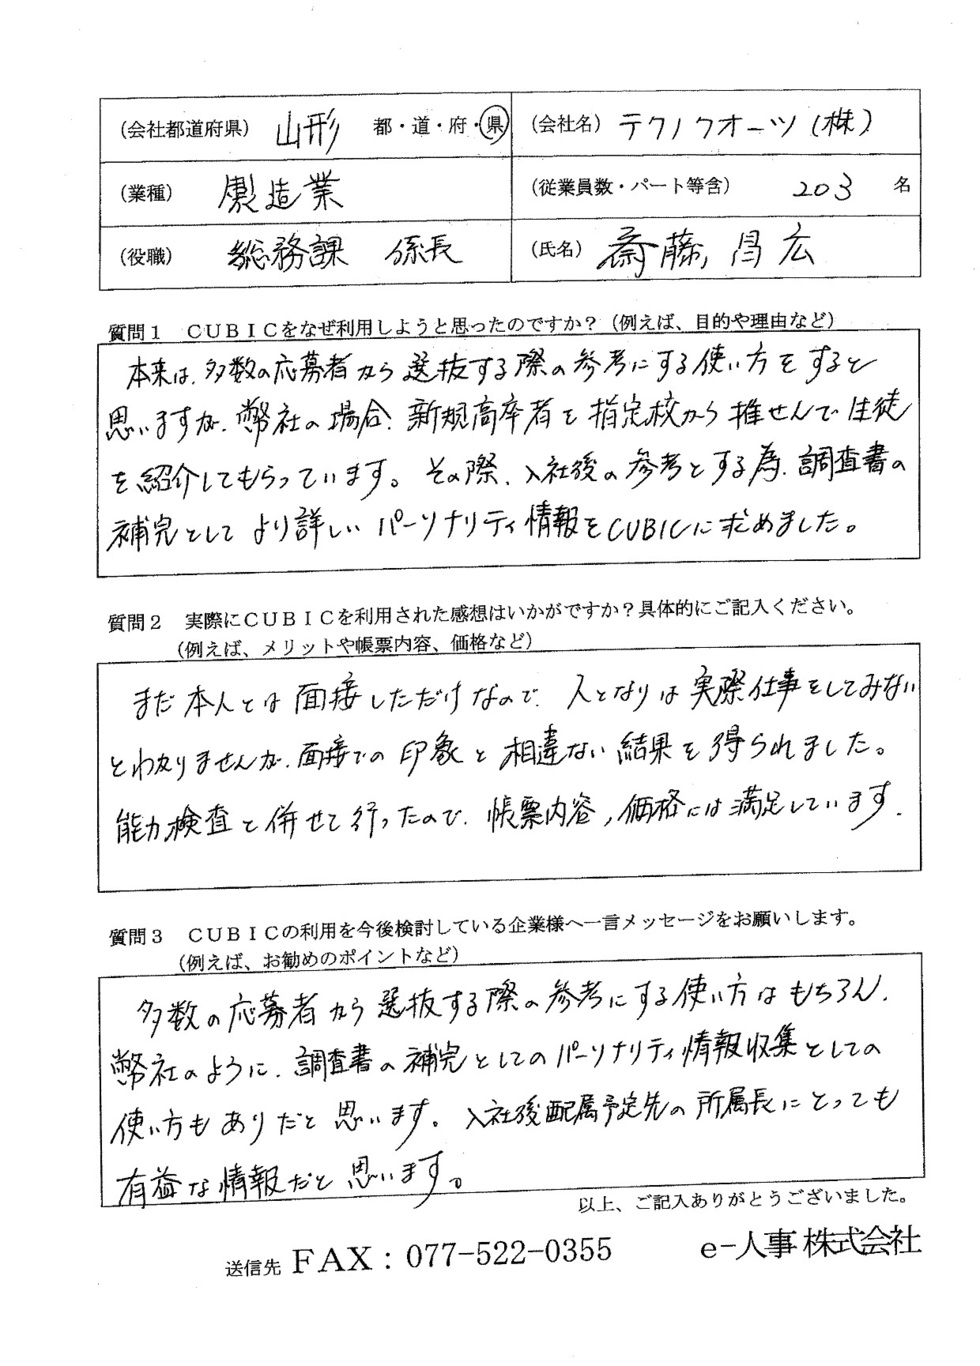 (会社都道府県) 山形 都・道・府・県 (会社名) テクノクオーツ(株)
(業種) 製造業 (従業員数・パート等含) 203 名
(役職) 総務課 係長 (氏名) 斎藤 昌広
質問1 CUBICをなぜ利用しようと思ったのですか?(例えば、目的や理由など)
本来は、多数の応募者から選抜する際の参考にする使い方をすると
思いますが、弊社の場合、新規高卒者を指定校から推せんで生徒
を紹介してもらっています。その際、入社後の参考とする為、調査書の
補完としてより詳しいパーソナリティ情報をCUBICに求めました。
質問2 実際にCUBICを利用された感想はいかがですか?具体的にご記入ください。
(例えば、メリットや帳票内容、価格など)
まだ本人とは面接しただけなので、人となりは実際仕事をしてみない
とわかりませんが、面接での印象と相違ない結果を得られました。
能力検査と併せて行ったので、帳票内容,価格には満足しています.
質問3 CUBICの利用を今後検討している企業様へ一言メッセージをお願いします。
(例えば、お勧めのポイントなど)
多数の応募者から選抜する際の参考にする使い方はもちろん、
弊社のように、調査書の補完としてのパーソナリティ情報収集としての
使い方もありだと思います。入社後配属予定先の所属長にとっても
有益な情報だと思います。
以上、ご記入ありがとうございました。
送信先 FAX:077-522-0355 e-人事株式会社